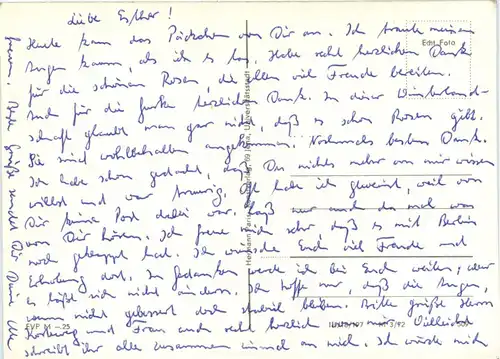 Liebe Esther!
Heute kam das Päckchen von Dir an. Ich traute meinen
Augen kaum, als ich es las. Habe recht herzlichen Dank
für die schönen Rosen, die allen viel Freude bereiten.
Und für die Gurke herzlichen Dank. In dieser Winterland-
schaft glaubt man gar nicht, daß es schon Rosen gibt.
Sie sind wohlbehalten angekommen. Nochmals besten Dank.
Ich habe schon gedacht, daß Du nichts mehr von mir wissen
willst und war traurig. Oft habe ich geweint, weil von
Dir keine Post dabei war. Laß nur auch da mal was
von Dir hören. Ich freue mich sehr, daß es mit Berlin
noch geklappt hat. Ich wünsche Euch viel Freude und
Erholung dort. In Gedanken werde ich bei Euch weilen, aber
es läßt sich nicht ändern. Ich hoffe nur, daß die Augen,
wenn nicht gebessert doch stabil bleiben. Bitte grüße Herrn
und Frau auch recht herzlich von mir. Vielleicht
schreibt ihr alle zusammen einmal an mich. Ich würde mich
freuen. Beste Grüße sendet Dir Deine Ute
Echt Foto
EVP M -.25